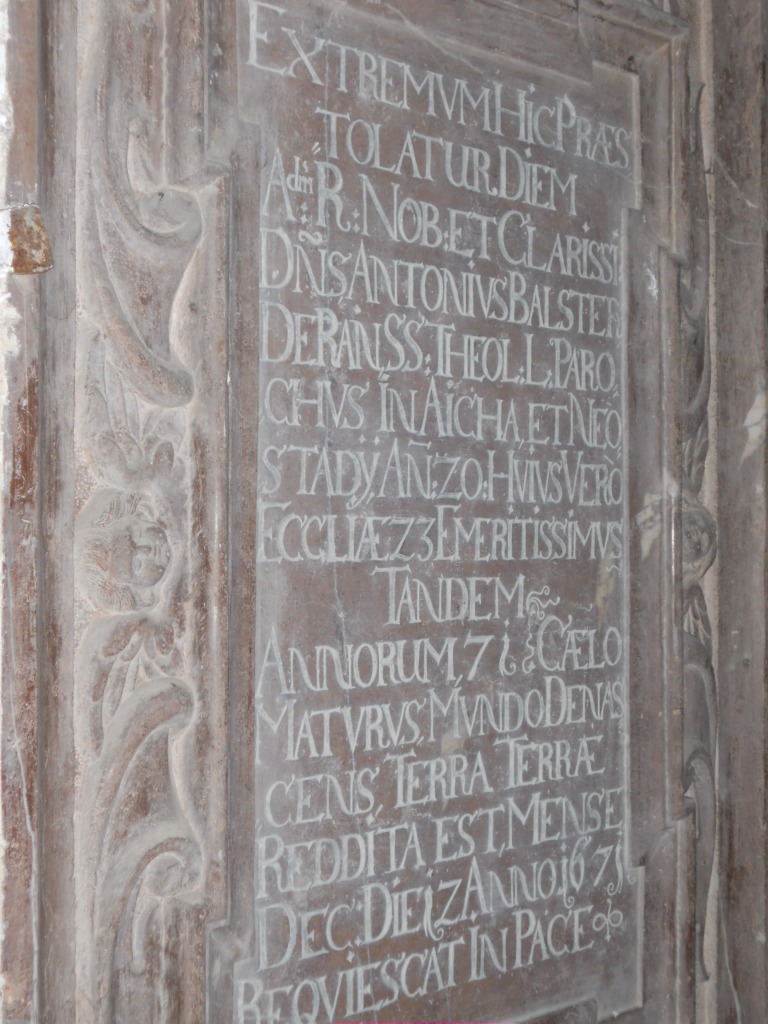 EXTREMVM HIC PRÆS
TOLATUR DIEM
Adm: R: NOB: ET CLARISSI:
DÑS ANTONIVS BALSTER
DE RAIN, SS: THEOL: L. PARO,
CHVS IN AICHA, ET NEO,
STADY, AÑ: ZO: HUIVS VERO
ECCLIÆ Z3 EMERITISSIMVS
TANDEM
ANNORUM, 71 CÆLO
MATURVS, MVNDO DENAS
CENS, TERRA TERRÆ
REDDITA EST, MENSE
DEC: DIE 1Z ANNO. 1671
REQVIESCAT IN PACE